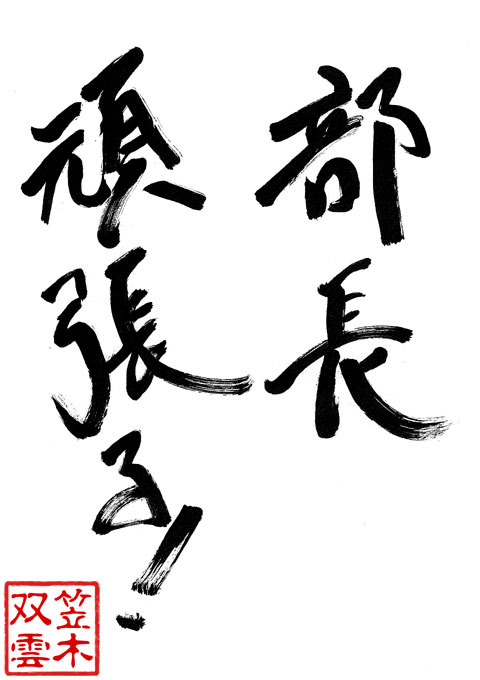 部長
頑張る!
笠木
双雲